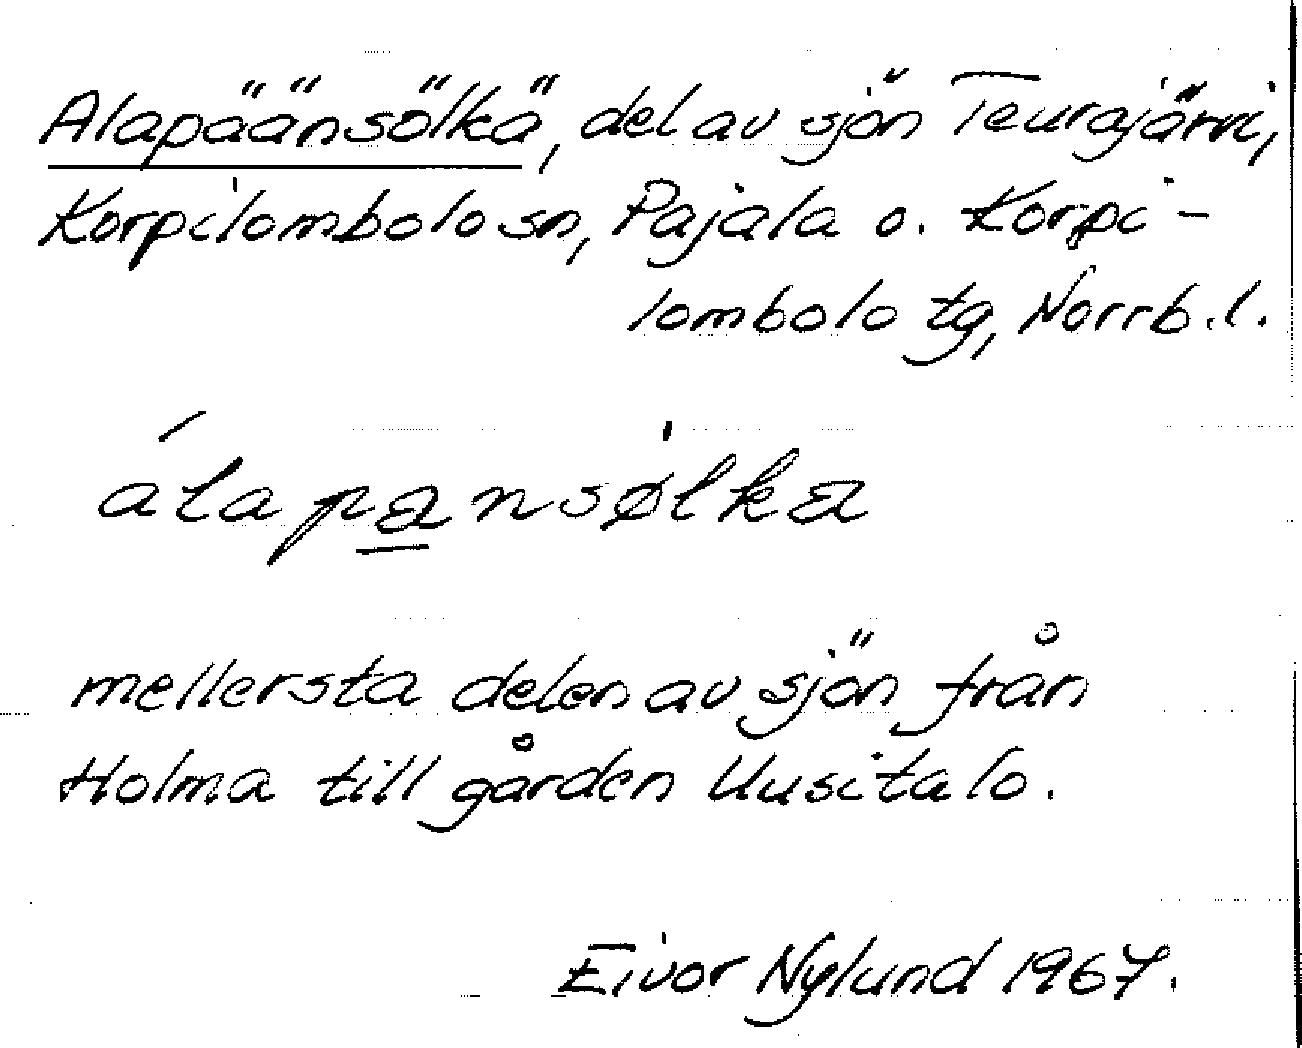 Alapäänsölkä, del av sjön Teurajärvi,
Korpilombolo sn, Pajala o. Korpi-
lombolo tg, Norrb. l.
álapa̲nsølka
mellersta delen av sjön från
Holma till gården Uusitalo.
Eivor Nylund 1967.